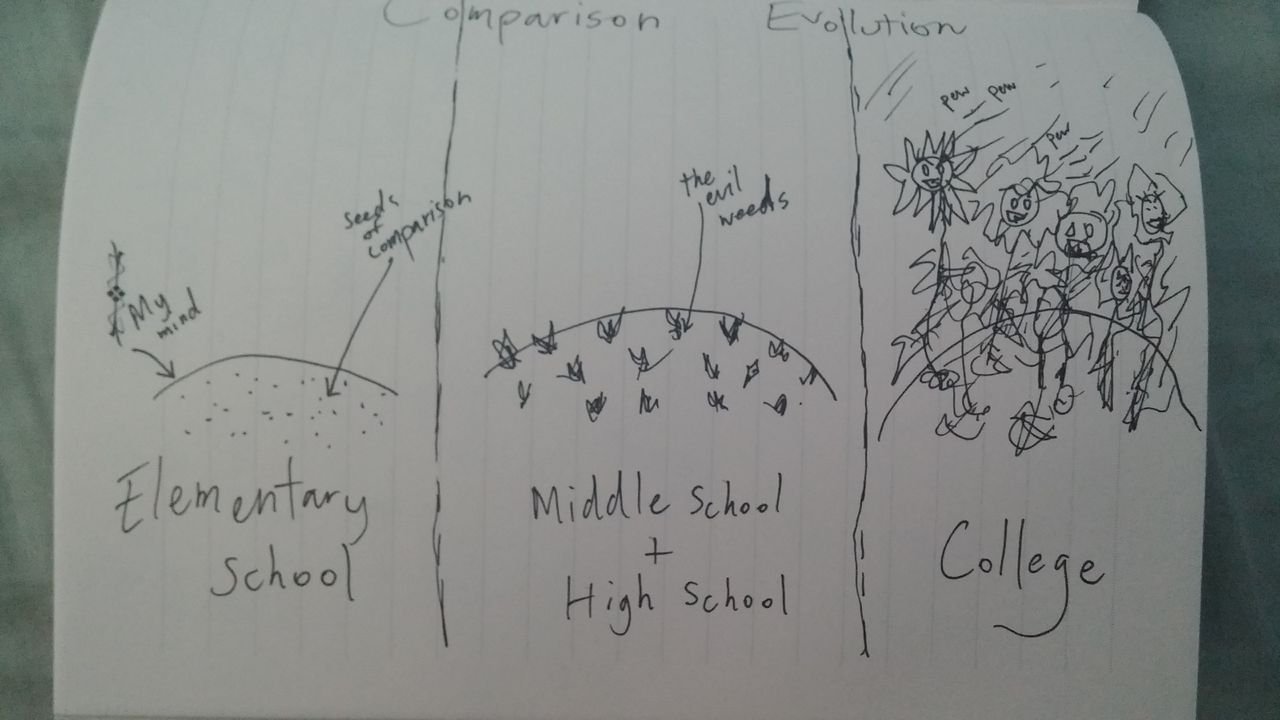 Comparison Evollution
My
mind
seeds
of
comparison
Elementary
School
the
evil
weeds
Middle School
+
High School
pew pew
pew
College